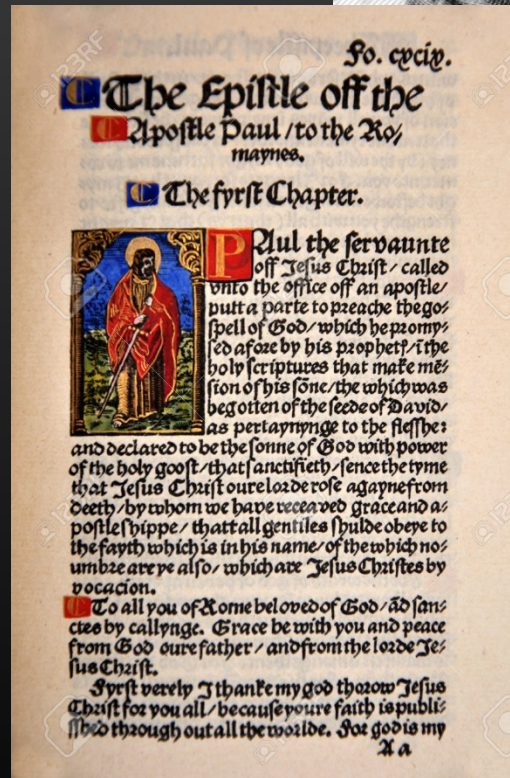 Fo. cxcix.
The Epistle off the
Apostle Paul / to the Ro/
maynes.
The fyrst Chapter.
PAul the servaunte
off Jesus Christ / called
vnto the office off an apostle /
putt a parte to preache the go=
spell of God / which he promy=
sed afore by his prophetꝭ / ī the
holy scriptures that make mē=
sion of his sōne / the which was
begotten of the seede of David /
as pertaynynge to the flesshe:
and declared to be the sonne of God with power
of the holy goost / that sanctifieth / sence the tyme
that Jesus Christ oure lorde rose agayne from
deeth / by whom we have receaved grace and a=
postleshippe / that all gentiles shulde obeye to
the fayth which is in his name / of the which no=
umbre are ye also / which are Jesus Christes by
vocacion.
To all you of Rome beloved of God / ād sanc=
ctes by callynge. Grace be with you and peace
from God oure father / and from the lorde Je=
sus Christ.
Fyrst verely I thanke my god thorow Jesus
Christ for you all / because youre faith is publi=
sshed through out all the worlde. For god is my
A a
123RF